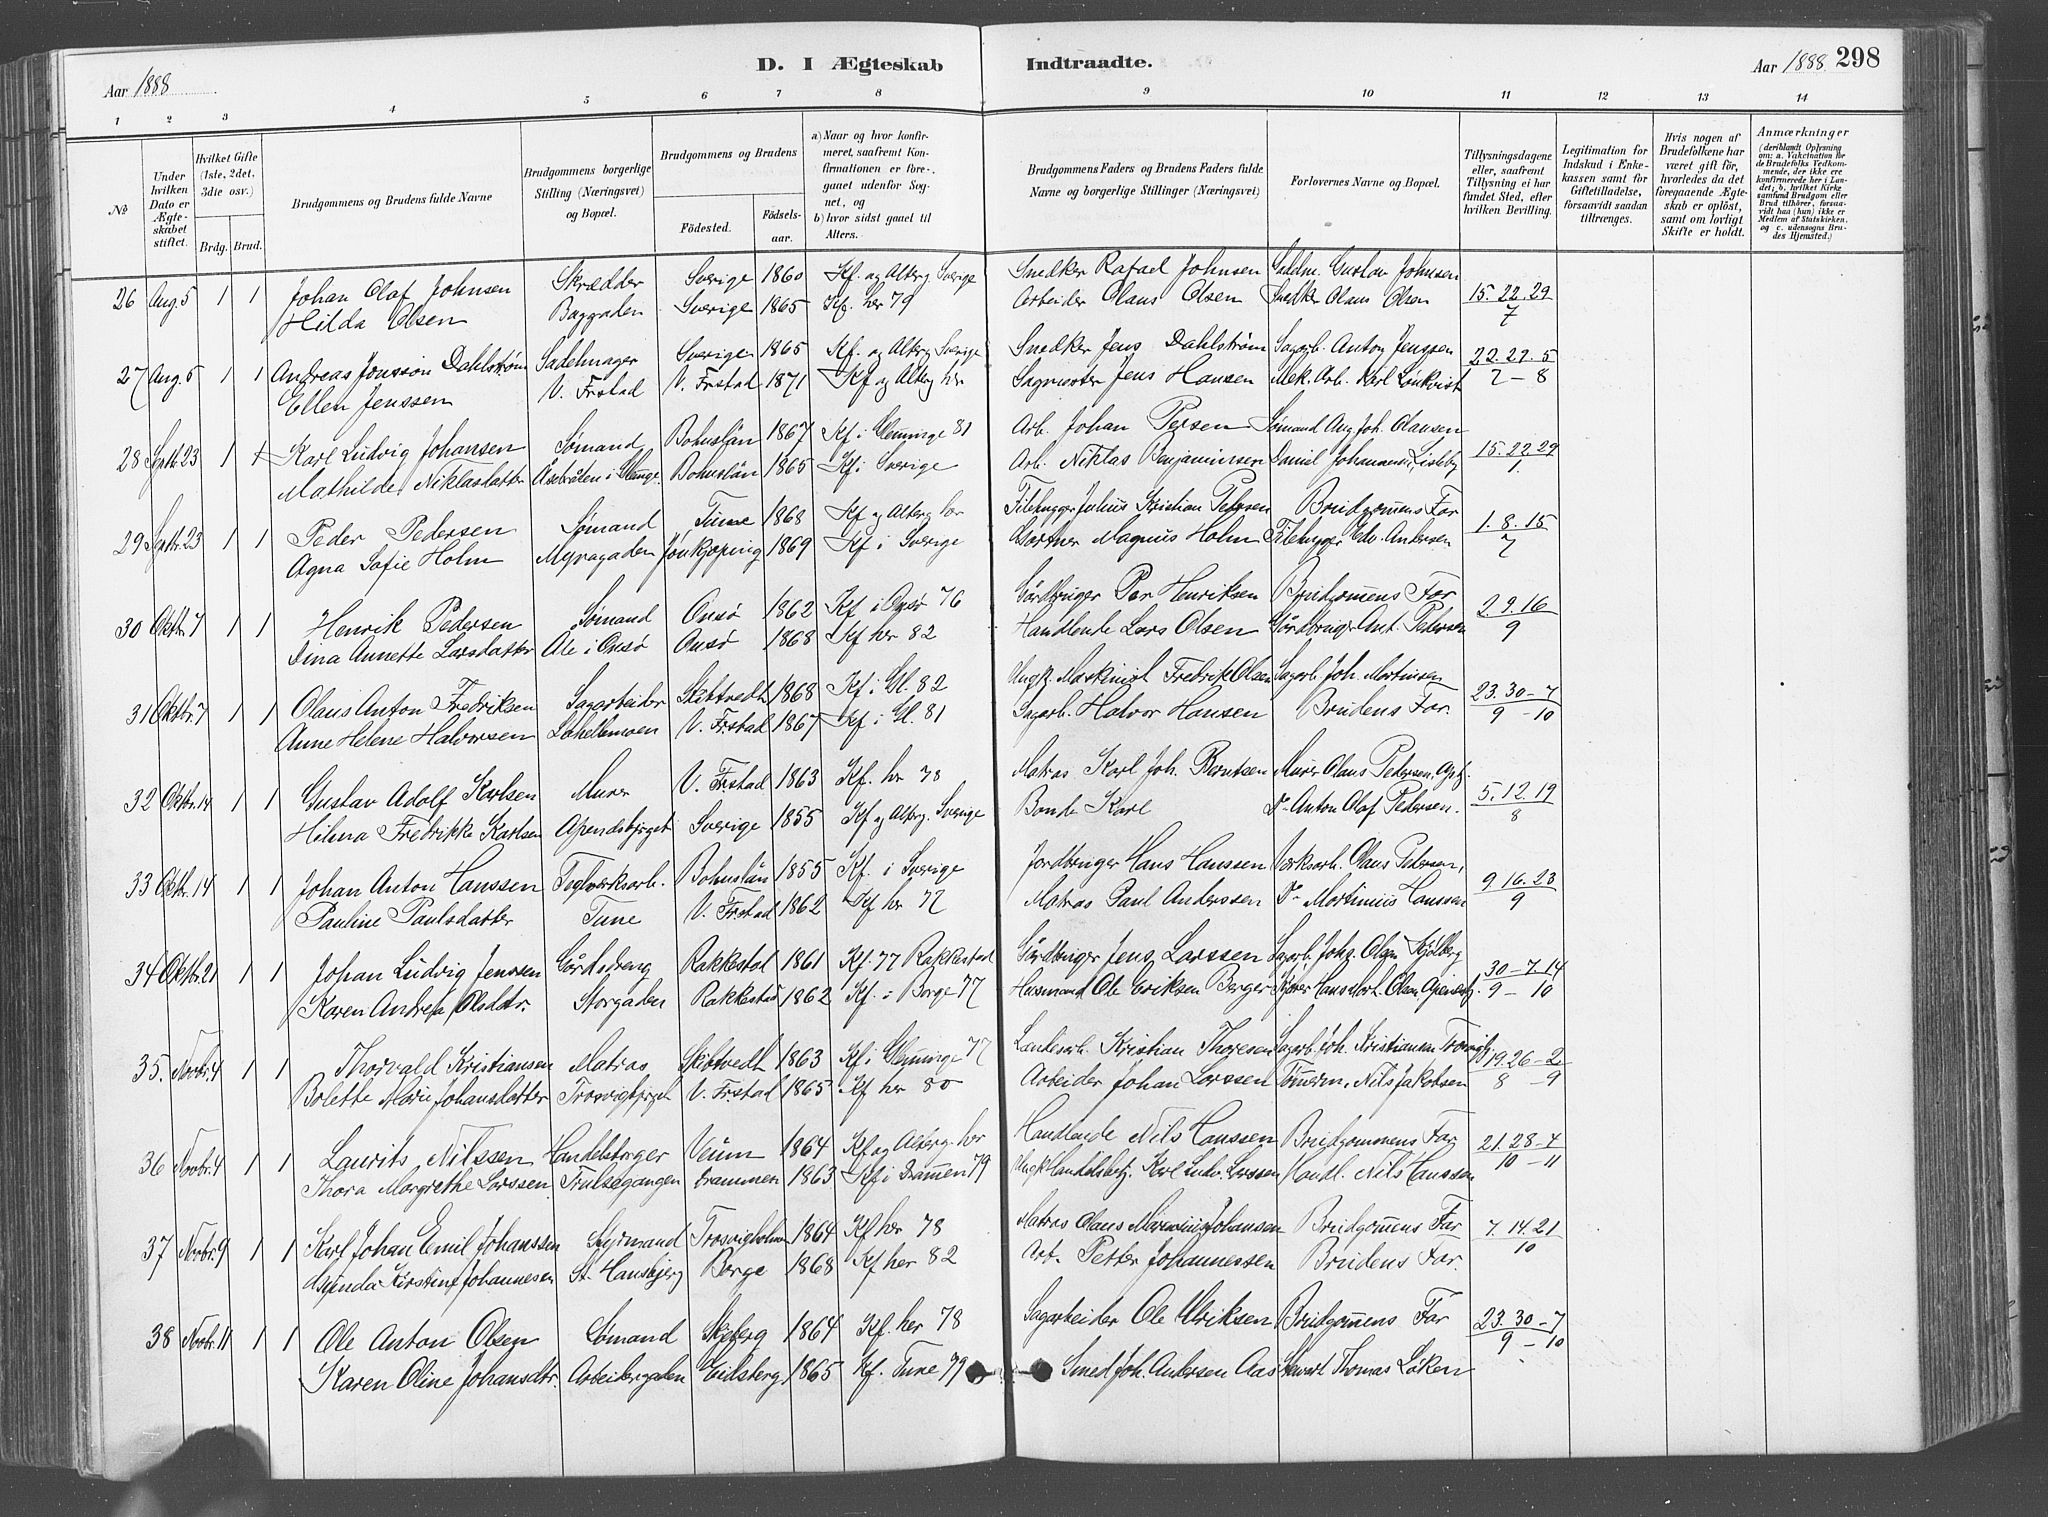 Aar 1888
D. I Ægteskab Indtraadte.
Aar 1888. 298
1 2 3 4 5 6 7 8 9 10 11 12 13 14
№
Under hvilken Dato er Ægteskabet stiftet.
Hvilket Gifte (1ste, 2det, 3die osv.)
Brdg. Brud.
Brudgommens og Brudens fulde Navne
Brudgommens borgerlige Stilling (Næringsvei) og Bopæl.
Brudgommens og Brudens
Fødested. Fødselsaar.
a) Naar og hvor konfirmeret, saafremt Konfirmationen er foregaaet udenfor Sognet, og b) hvor sidst gaaet til Alters.
Brudgommens Faders og Brudens Faders fulde Navne og borgerlige Stillinger (Næringsvei)
Forlovernes Navne og Bopæl.
Tillysningsdagene eller, saafremt Tillysning ei har fundet Sted, efter hvilken Bevilling.
Legitimation for Indskud i Enkekassen samt for Giftetilladelse, forsaavidt saadan tiltrænges.
Hvis nogen af Brudefolkene har været gift før, hvorledes da det foregaaende Ægteskab er opløst, samt om lovligt Skifte er holdt.
Anmærkninger (deriblandt Oplysning om: a. Vakcination for de Brudefolks Vedkommende, der ikke ere konfirmerede her i Landet; b. hvilket Kirkesamfund Brudgom eller Brud tilhører, forsaavidt han (hun) ikke er Medlem af Statskirken, og c. udensogns Brudes Hjemsted.)
26 Aug. 5 1 1 Johan Olaf Johnsen Skrædder Sverige 1860 Kf. og Alterg Sverige Snedker Rafael Johnsen Gustav Johnsen 15. 22. 29
Hilda Olsen Baggaden Sverige 1865 Kf. her 79 Arbeider Olaus Olsen Snedker Olaus Olsen 7
27 Aug. 5 1 1 Andreas Jonsson Dahlström Sadelmager Sverige 1865 Kf. og Alterg Sverige Snedker Jens Dahlström Sagarb. Anton Jenssen 22. 29. 5
Ellen Jenssen V. Frstad V. Frstad 1871 Kf og Alterg her Sagmester Jens Hansen Mek. Arb. Karl Lönkvist 7 – 8
28 Septr. 23 1 1 Karl Ludvig Johansen Sømand Bohuslän 1867 Kf i Glemminge 81 Arb. Johan Persen Sømand Aug. Joh. Olausen 15. 22. 29
Mathilde Niklasdatter i Glemge. Bohuslän 1865 Kf i Sverige Arb. Niklas Benjaminsen Daniel Johannesen, Lisleby
29 Septr. 23 1 1 Peder Pedersen Sømand Tune 1868 Kf og Alterg her Filehugger Julius Kristian Pedersen Brudgommens Far 1. 8. 15
Agna Sofie Holm Myragaden Jönkjøping 1869 Kf i Sverige Gartner Magnus Holm Filehugger Edv. Andersen 7
30 Oktbr. 7 1 1 Henrik Pedersen Sømand Onsø 1862 Kf i Onsø 76 Gårdbruger Per Henriksen Brudgommens Far 2. 9. 16
Dina Annette Larsdatter Åle i Onsø Onsø 1868 Kf her 82 Handlende Lars Olsen Gårdbruger Ant. Pedersen 9
31 Oktbr. 7 1 1 Olaus Anton Fredriksen Sagarbeider Skibtvedt 1868 Kf i Gl. 82 Ungk. Maskinist Fredrik Olsen Sagarb. Joh. Mortinsen 23. 30 – 7
Anne Helene Halvorsen Lahellemoen V. Frstad 1867 Kf i Gl. 81 Sagarb. Halvor Hansen Brudens Far. 9 – 10
32 Oktbr. 14 1 1 Gustav Adolf Karlsen Murer V. Frstad 1863 Kf. her 78 Matros Karl Joh. Berntsen Murer Olaus Pedersen, 5. 12. 19
Hilma Fredrikke Karlsen Apenesbjerget Sverige 1855 Kf og Alterg. Sverige Bonde Karl Do Anton Olaf Pedersen. 8
33 Oktbr. 14 1 1 Johan Anton Hanssen Teglverksarb. Bohuslän 1855 Kf. i Sverige Jordbruger Hans Hanssen Værksarb. Olaus Pedersen, 9. 16. 23
Pauline Paulsdatter Tune V. Frstad 1862 Kf her 77 Matros Paul Anderssen Do Mortinius Hanssen 9
34 Oktbr. 21 1 1 Johan Ludvig Jenssen Gårdsdreng Rakkestad 1861 Kf. 77 Rakkestad Gårdbruger Jens Larssen Sagarb. Johs. Olsen Kjölberg 30 – 7. 14
Karen Andrea Olsdtr. Storgaden Rakkestad 1862 Kf. i Borge 77 Husmand Ole Eriksen Berger Kjører Hans Mort. Olsen Apenesbj. 9 – 10
35. Novbr. 4 1 1 Thorvald Kristiansen Matros Skibtvedt 1863 Kf i Glemminge 77 Kristian Thoresen Sagarb. Joh. Kristiansen Trosvigbj. 19. 26 – 2
Bolette Marie Johansdatter Trosvigbjerget V. Frstad 1865 Kf her 80 Arbeider Johan Larssen Tømmerm. Nils Jakobsen 8 – 9
36 Novbr. 4 1 1 Laurits Nilssen Handelsborger Veum 1864 Kf og Alterg. her Handlende Nils Hanssen Brudgommens Far 21. 28 – 4
Thora Margrethe Larssen Trulsegangen Drammen 1863 Kf i Drammen 79 Ungk Handelsbetj. Karl Ludv. Larssen Handl. Nils Hanssen 10 – 11
37 Novbr. 9 1 1 Karl Johan Emil Johanssen Styrmand Trosvigholmen 1864 Kf her 78 Matros Olaus Johansen Brudgommens Far 7. 14. 21
Kirstine Johannesen St. Hansbjerg Borge 1868 Kf her 82 Arb. Petter Johannessen Brudens Far. 10
38 Novbr. 11 1 1 Ole Anton Olsen Sømand Skjeberg 1864 Kf. her 78 Sagarbeider Ole Ulriksen Brudgommens Far 23. 30 – 7
Karen Oline Johansdtr. Arbeidergaden Eidsberg 1865 Kf. Tune 79 Smed Joh. Andersen Aas Thomas Løken 9 – 10